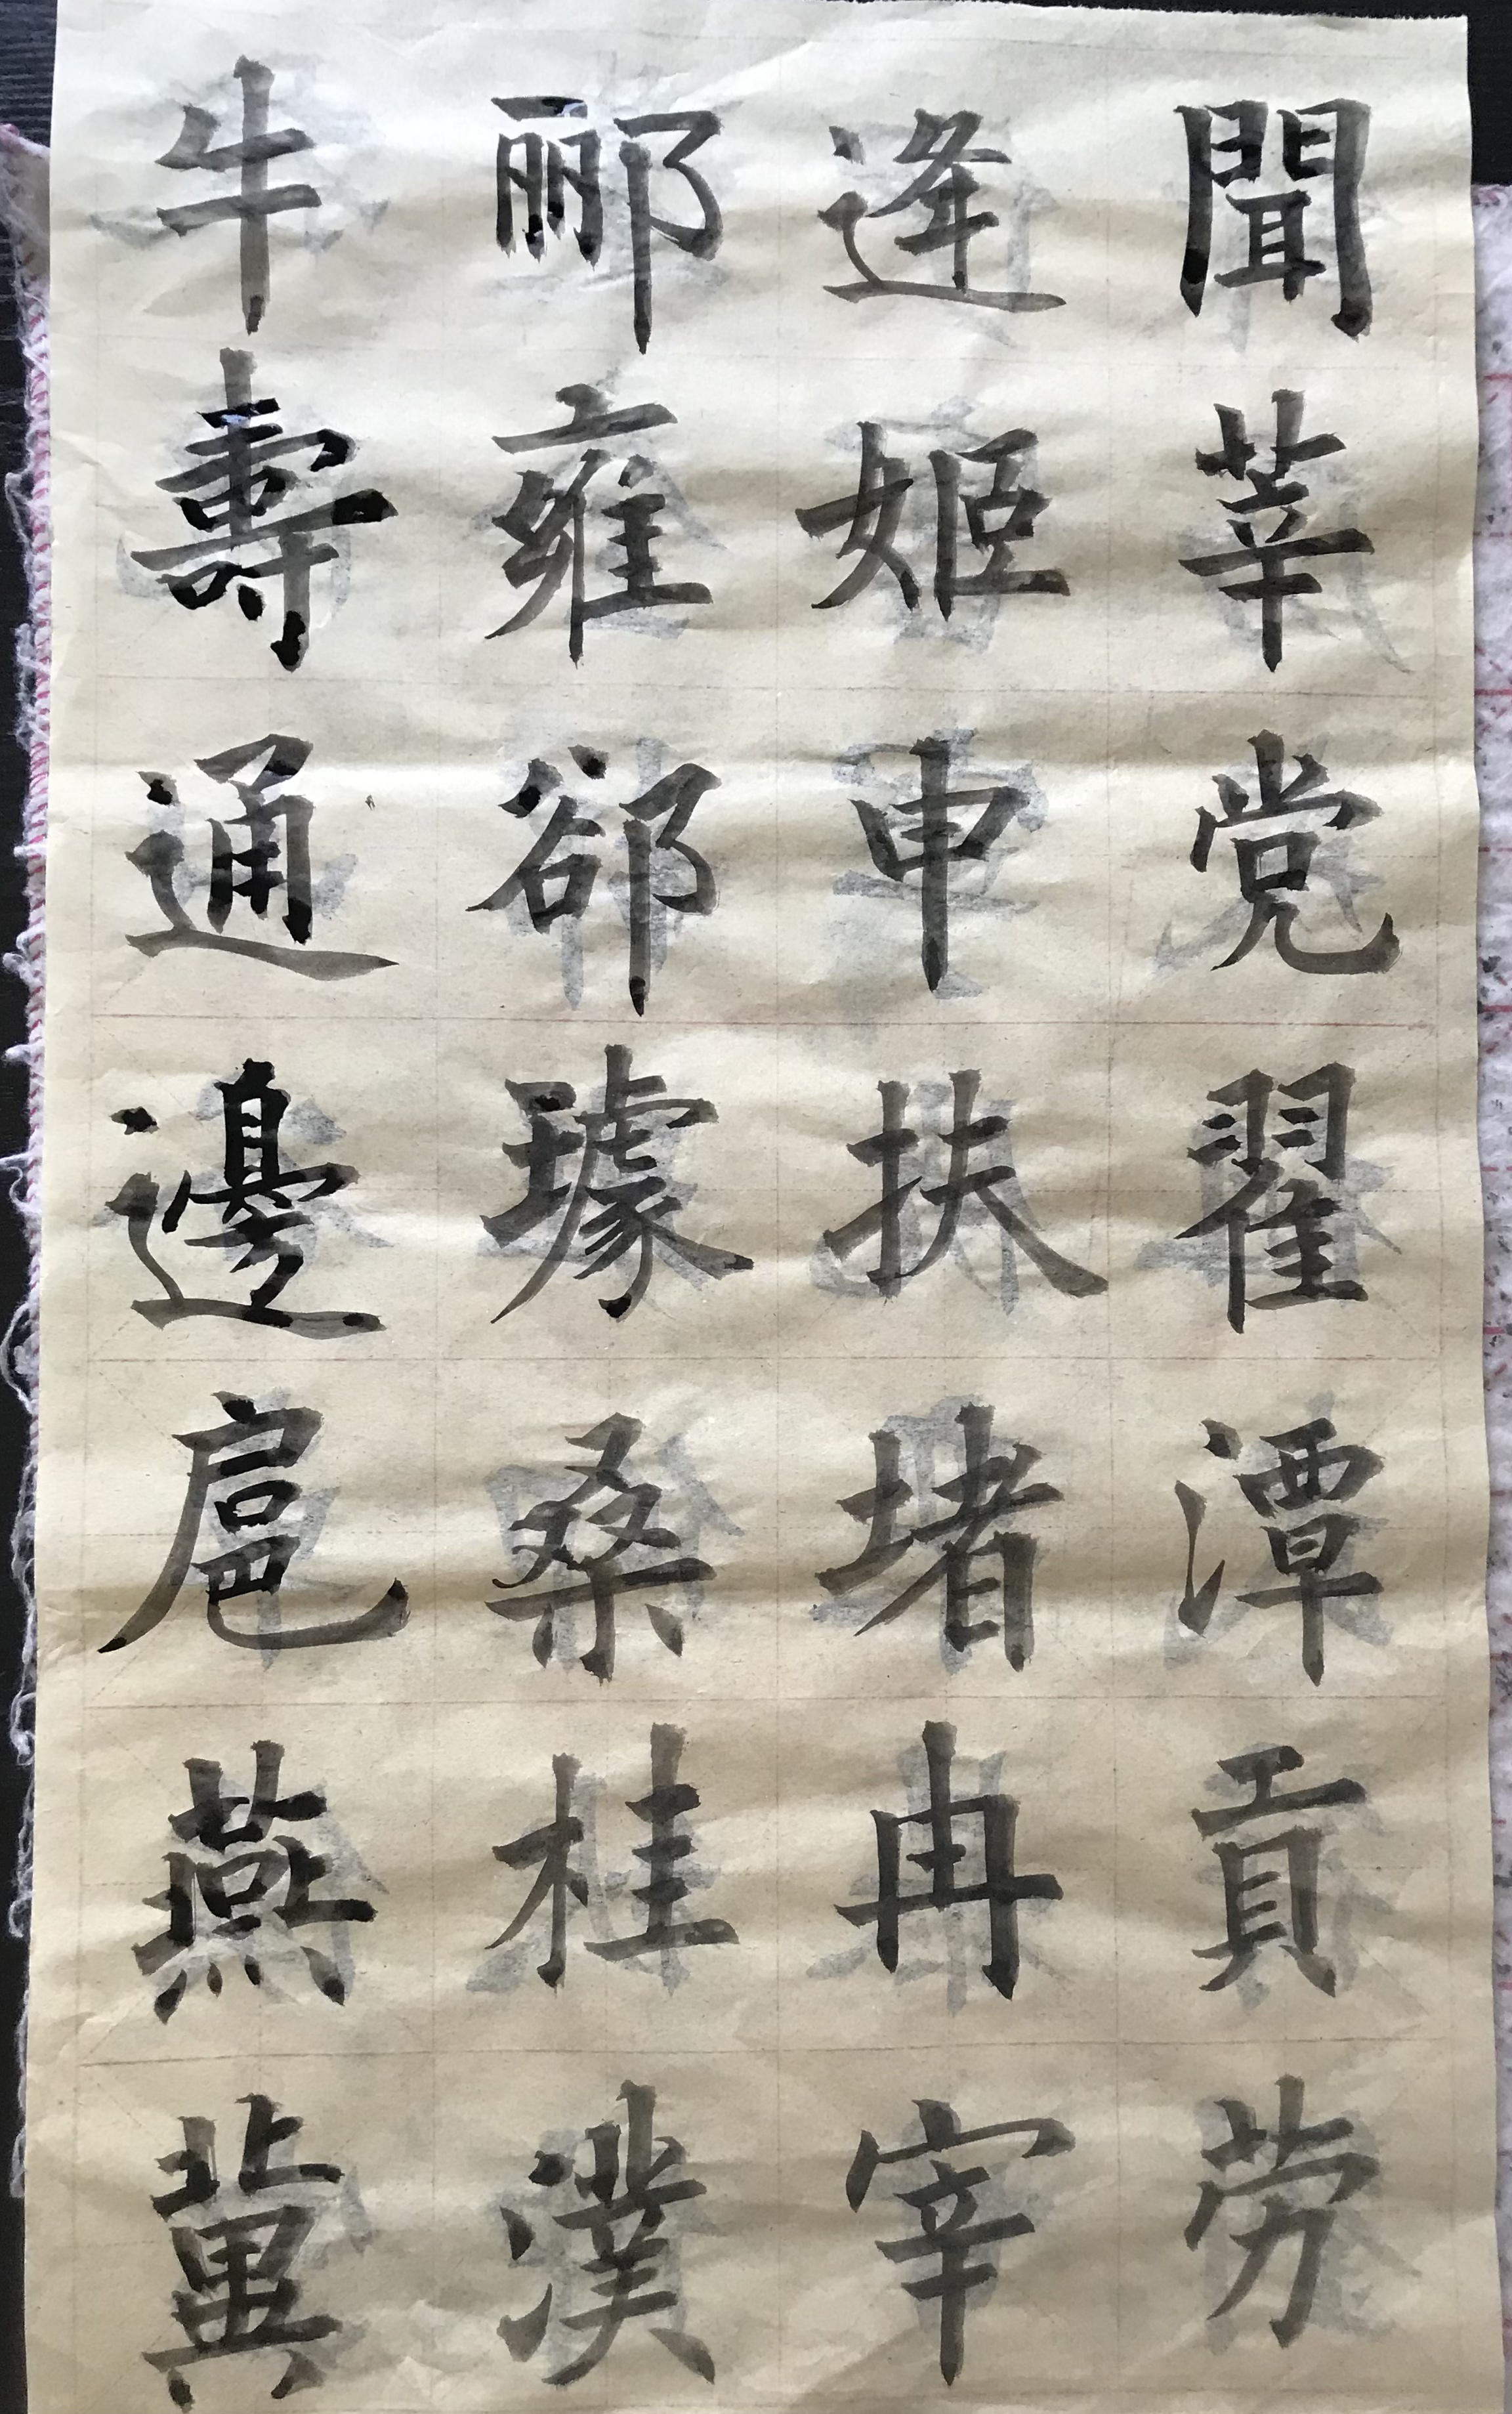 聞莘党翟潭貢劳
逄姬申扶堵冉宰
郦雍郤璩桑桂濮
牛壽通邊扈燕冀